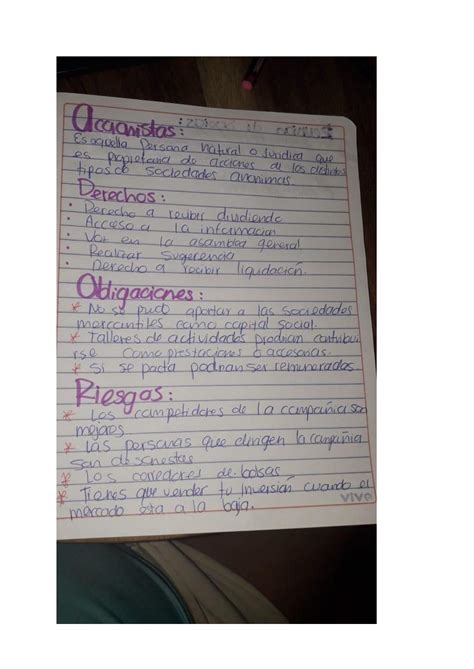 Accionistas:
Es aquella Persona natural o Juridica que
es propietaria de acciones de los distintos
tipos de sociedades anonimas.
Derechos:
· Derecho a recibir dividiendo
· Acceso a la informacion
· Voz en la asamblea general
· Realizar sugerencia
· Derecho a recibir liquidación.
Obligaciones:
* No se pudo aportar a las sociedades
mercantiles como capital social.
* Talleres de actividades prodrian contribui
rse como prestaciones o accesorias.
* Si se pacta podrian ser remuneradas.
Riesgos:
* Los competidores de la compañia son
mejores
* Las personas que dirigen la compañia
son deshonestas
* Los corredores de bolsas
* Tienes que vender tu inversión cuando el
mercado esta a la baja.
VIVA